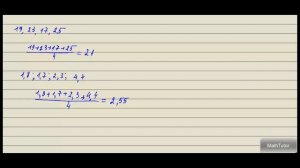 19, 23, 17, 25
19+23+17+25
4
= 21
1,8 ; 1,7 ; 2,3 ; 4,4
1,8+1,7+2,3+4,4
4
= 2,55
MathTutor